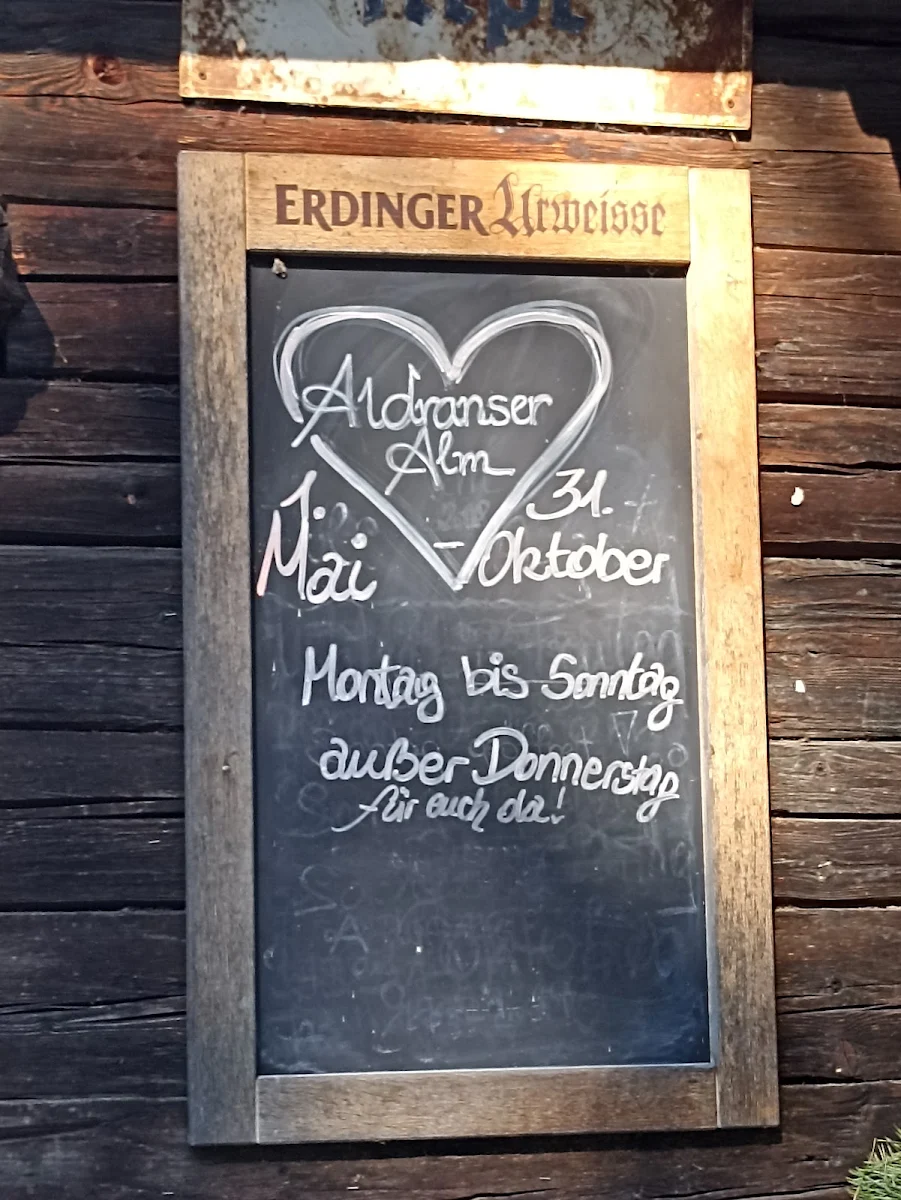 ERDINGER Urweisse
Aldranser
Alm
1. Mai – 31. Oktober
Montag bis Sonntag
außer Donnerstag
für euch da!